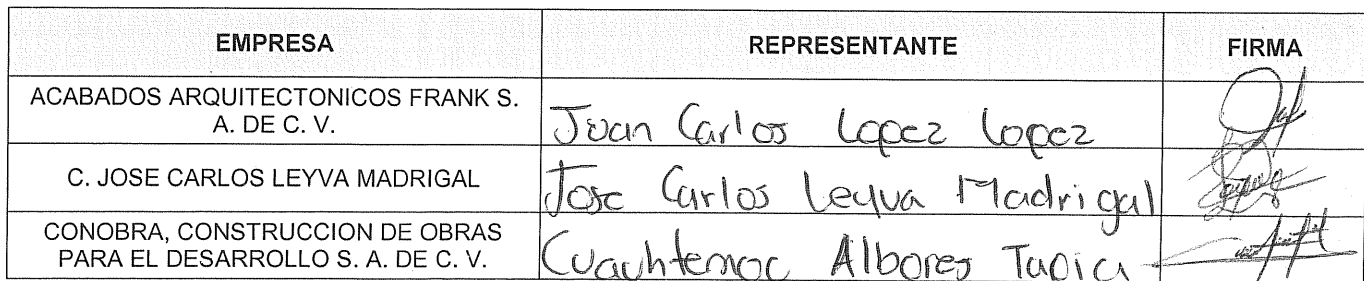 EMPRESA REPRESENTANTE FIRMA
ACABADOS ARQUITECTONICOS FRANK S.
A. DE C. V.
Juan Carlos Lopez Lopez
C. JOSE CARLOS LEYVA MADRIGAL
Jose Carlos Leyva Madrigal
CONOBRA, CONSTRUCCION DE OBRAS
PARA EL DESARROLLO S. A. DE C. V.
Cuauhtemoc Albores Tapia